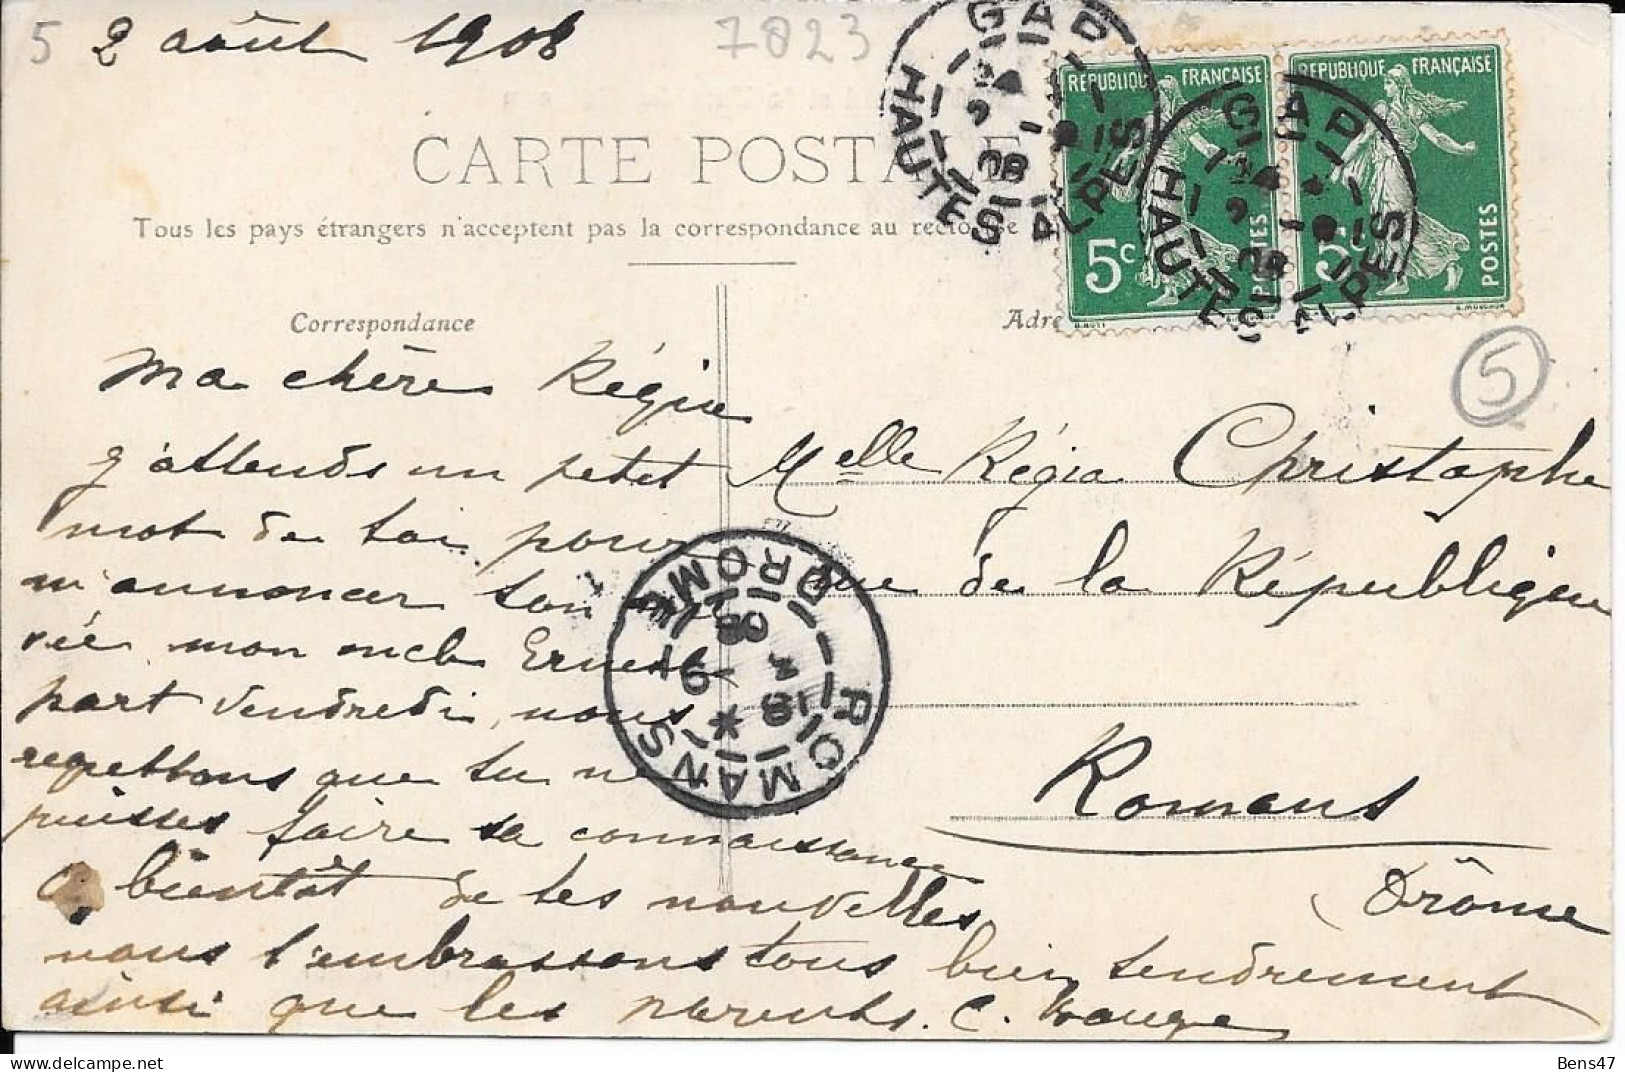 5 2 août 1908 7823
CARTE POSTALE
Tous les pays étrangers n'acceptent pas la correspondance au recto se
Correspondance
Adre
REPUBLIQUE FRANÇAISE
5c POSTES
REPUBLIQUE FRANÇAISE
5c POSTES
GAP
HAUTES ALPES
GAP
HAUTES ALPES
5
Ma chère Régine
j'attends un petit
mot de toi pour
m'annoncer ton
rée mon oncle Ernest
part vendredi, nous
regrettons que tu ne
puisses faire sa connaissance
à bientôt de tes nouvelles
nous t'embrassons tous bien tendrement
ainsi que les parents. C.
Melle Régia Christophe
rue de la République
Romans
Drôme
ROMANS
DROME
Bens47